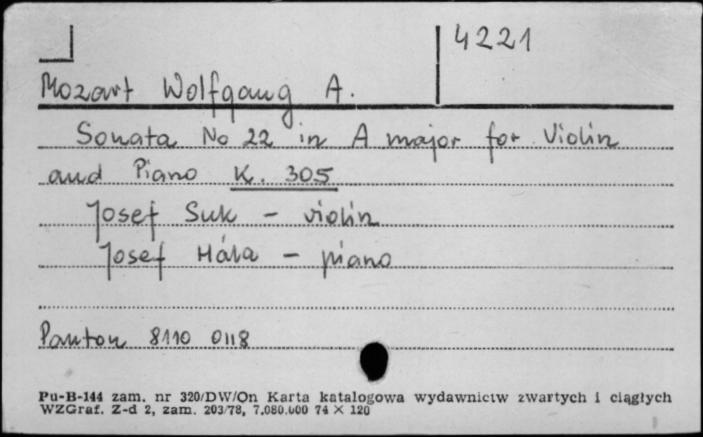 4221
Mozart Wolfgang A.
Sonata No 22 in A major for Violin
and Piano K. 305
Josef Suk – violin
Josef Hála – piano
Panton 8110 0118
Pu-B-144 zam. nr 320/DW/On Karta katalogowa wydawnictw zwartych i ciągłych
WZGraf. Z-d 2, zam. 203/78, 7.080.000 74 × 120